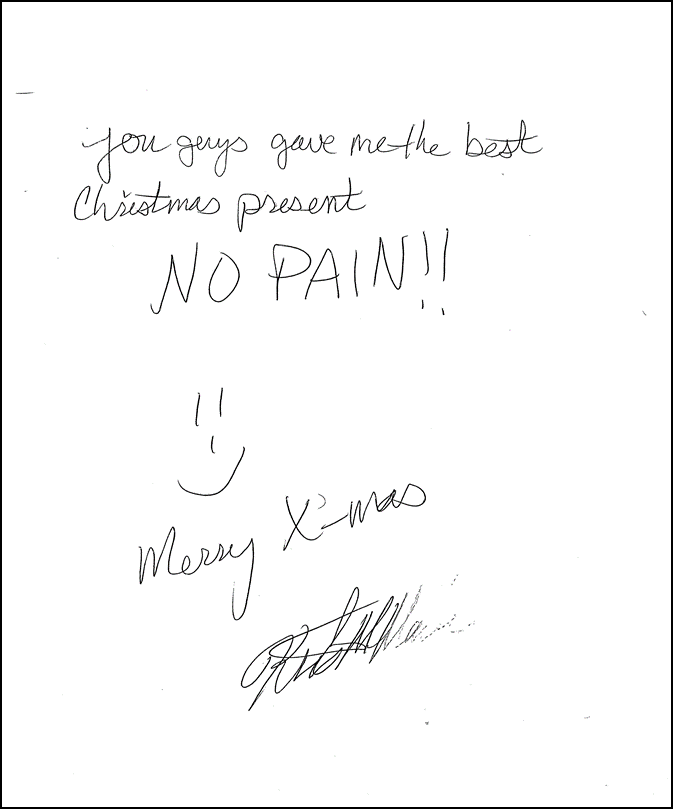 You guys gave me the best
Christmas present
NO PAIN!!
Merry X-mas